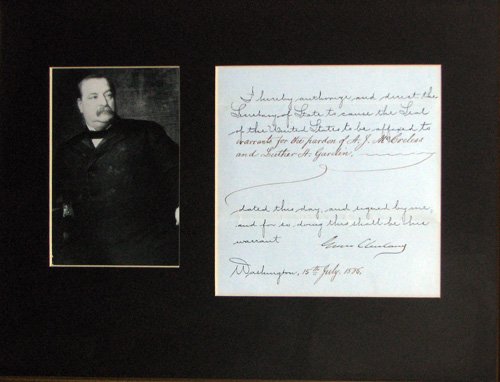 I hereby authorize and direct the
Secretary of State to cause the Seal
of the United States to be affixed to
warrants for the pardon of A. J. McCreless
and Luther A. Garden,
dated this day, and signed by me,
and for so doing this shall be his
warrant
Grover Cleveland
Washington, 15th July, 1896.